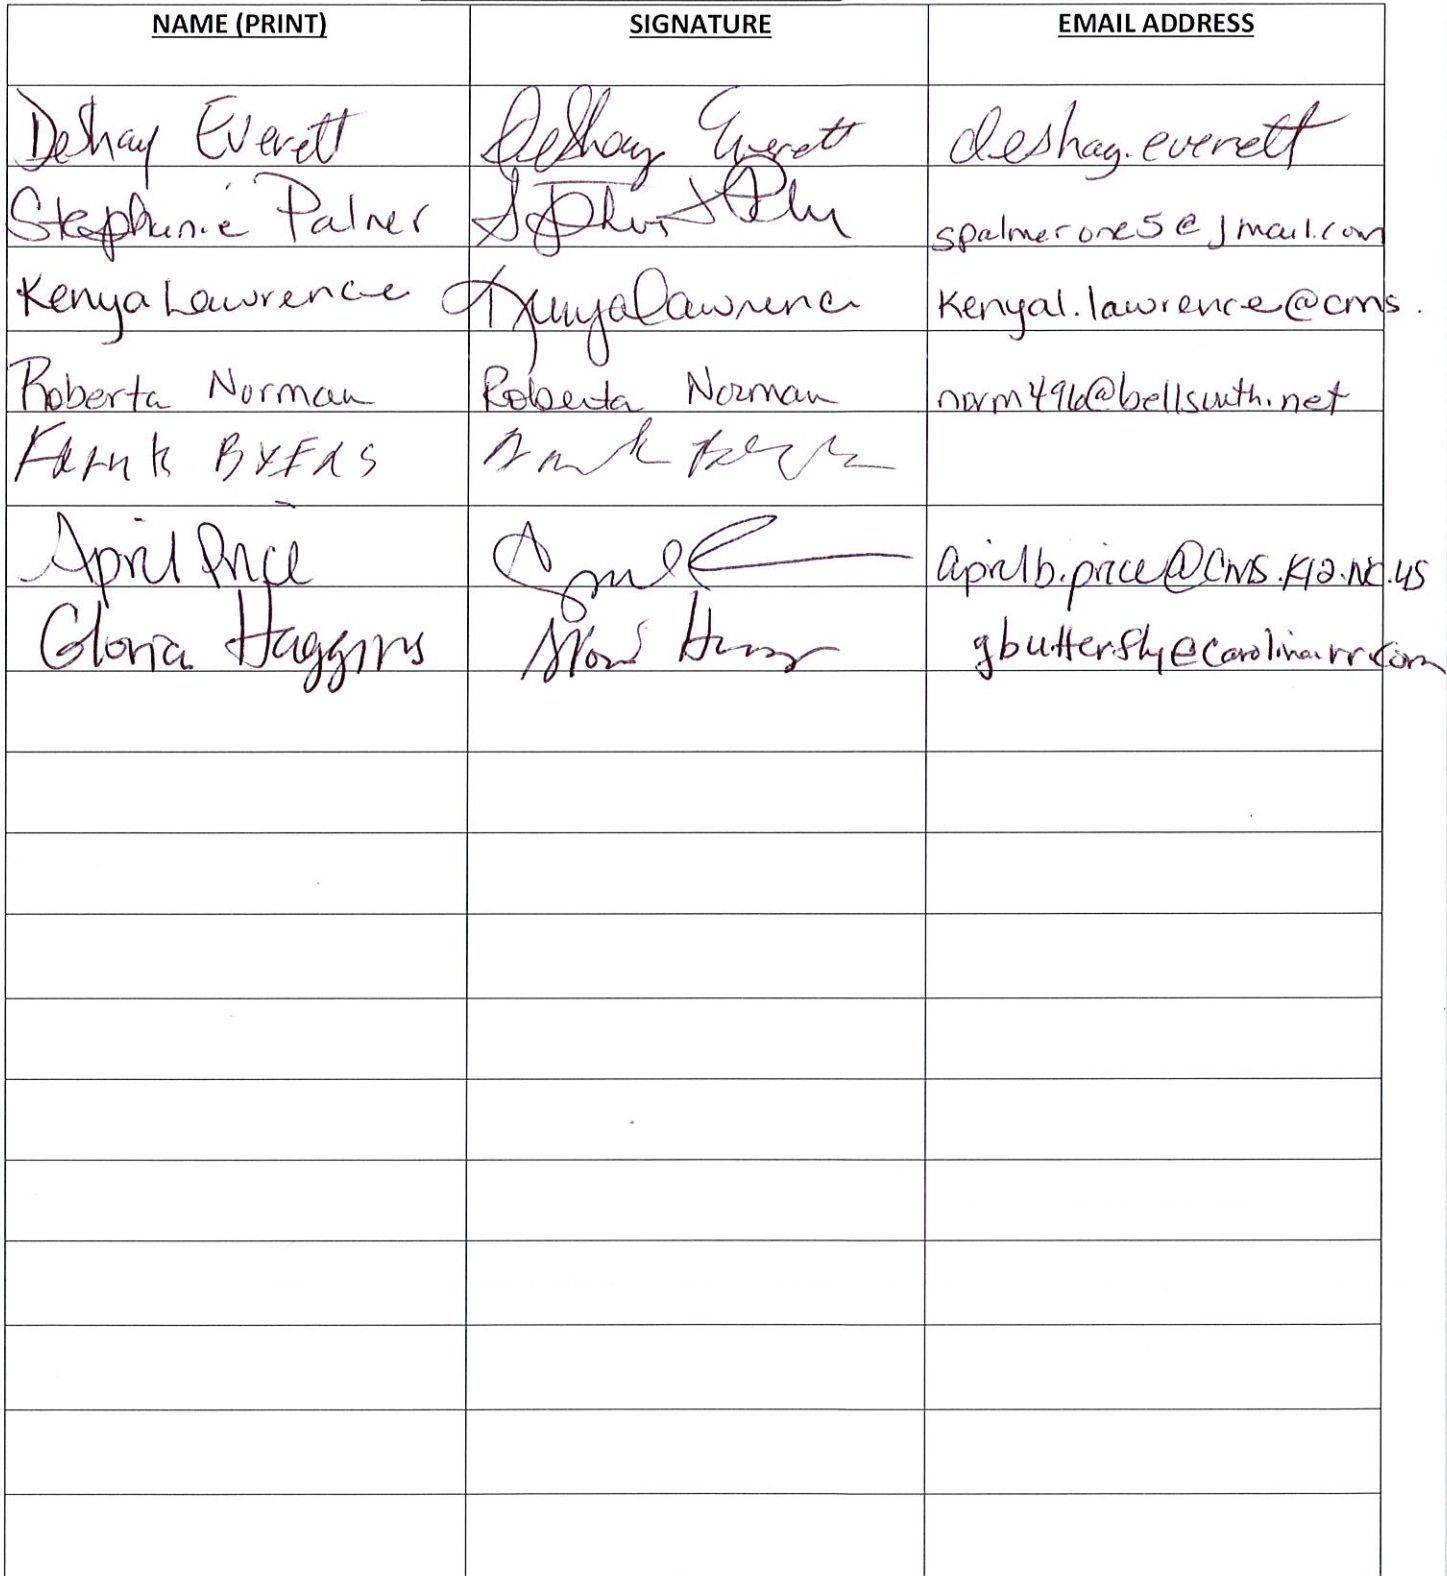 NAME (PRINT) SIGNATURE EMAIL ADDRESS
DeShay Everett DeShay Everett deshay.everett
Stephanie Palmer spalmerone5@jmail.com
Kenya Lawrence Kenya Lawrence Kenyal.lawrence@cms.
Roberta Norman Roberta Norman norm496@bellsouth.net
BYERS
April Price aprilb.price@cms.k12.nc.us
Gloria Haggins gbutterfly@carolina.rr.com